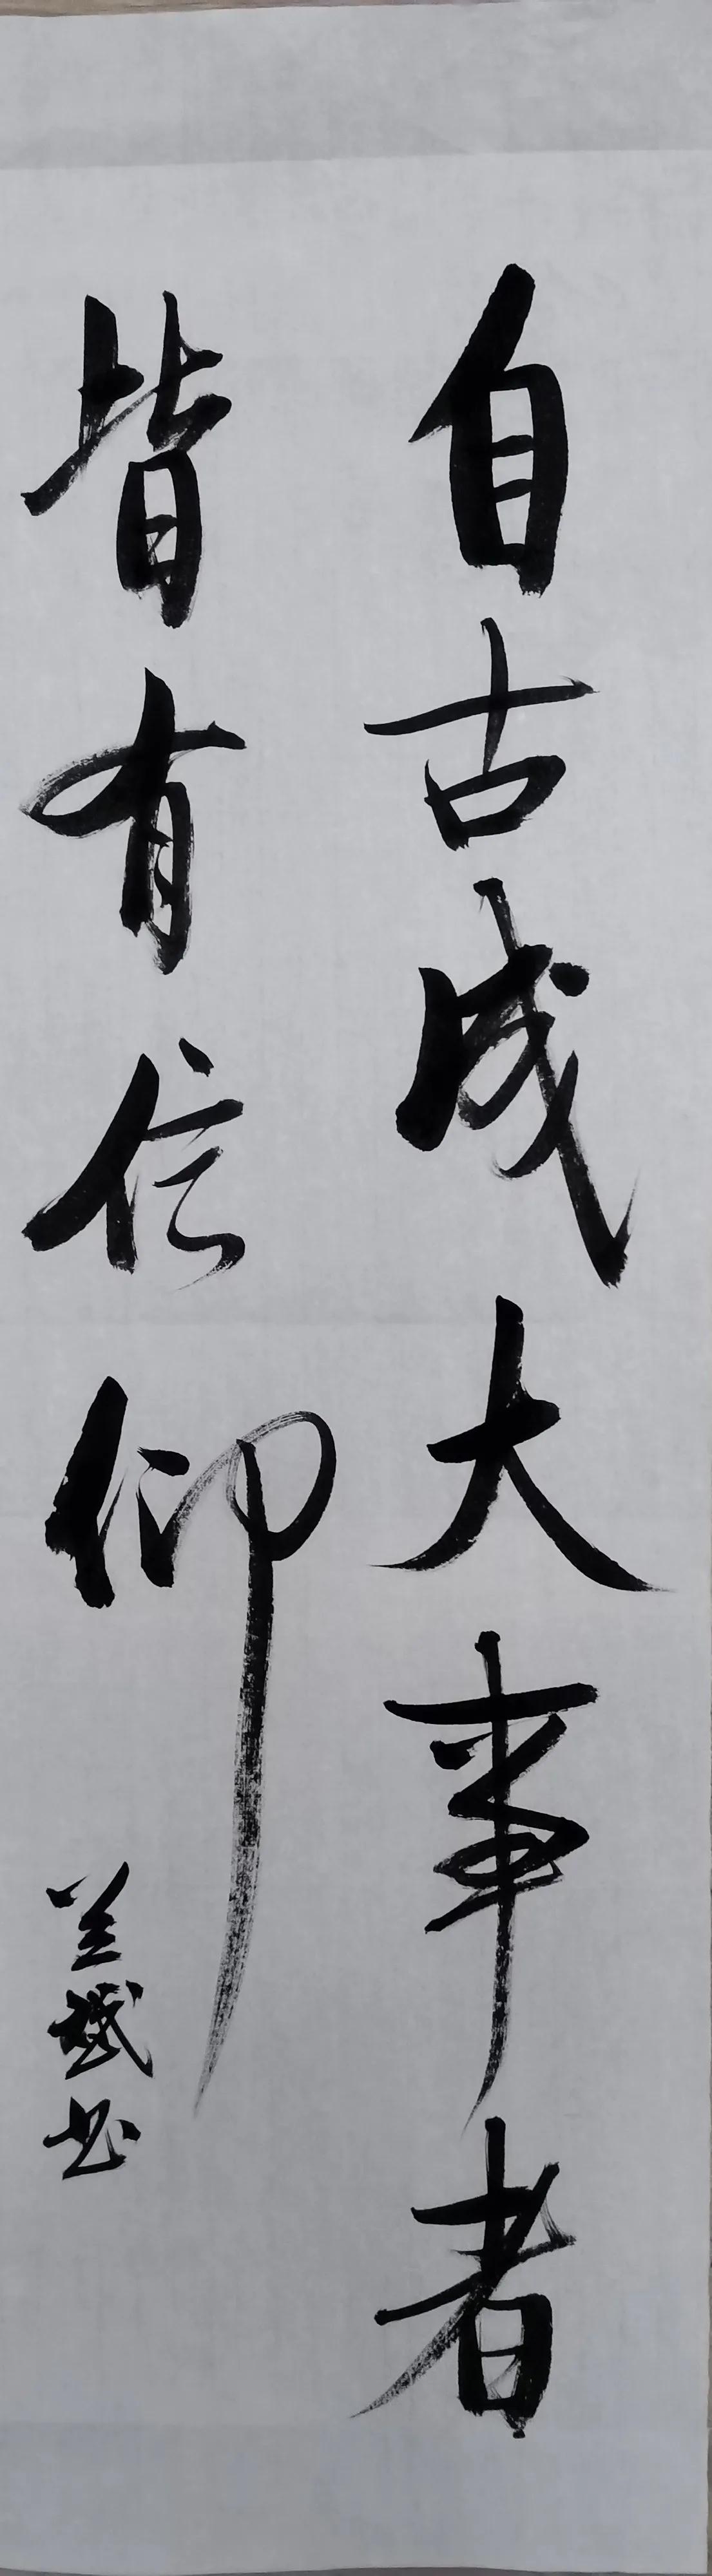 自古成大事者
皆有信仰
兰斌书